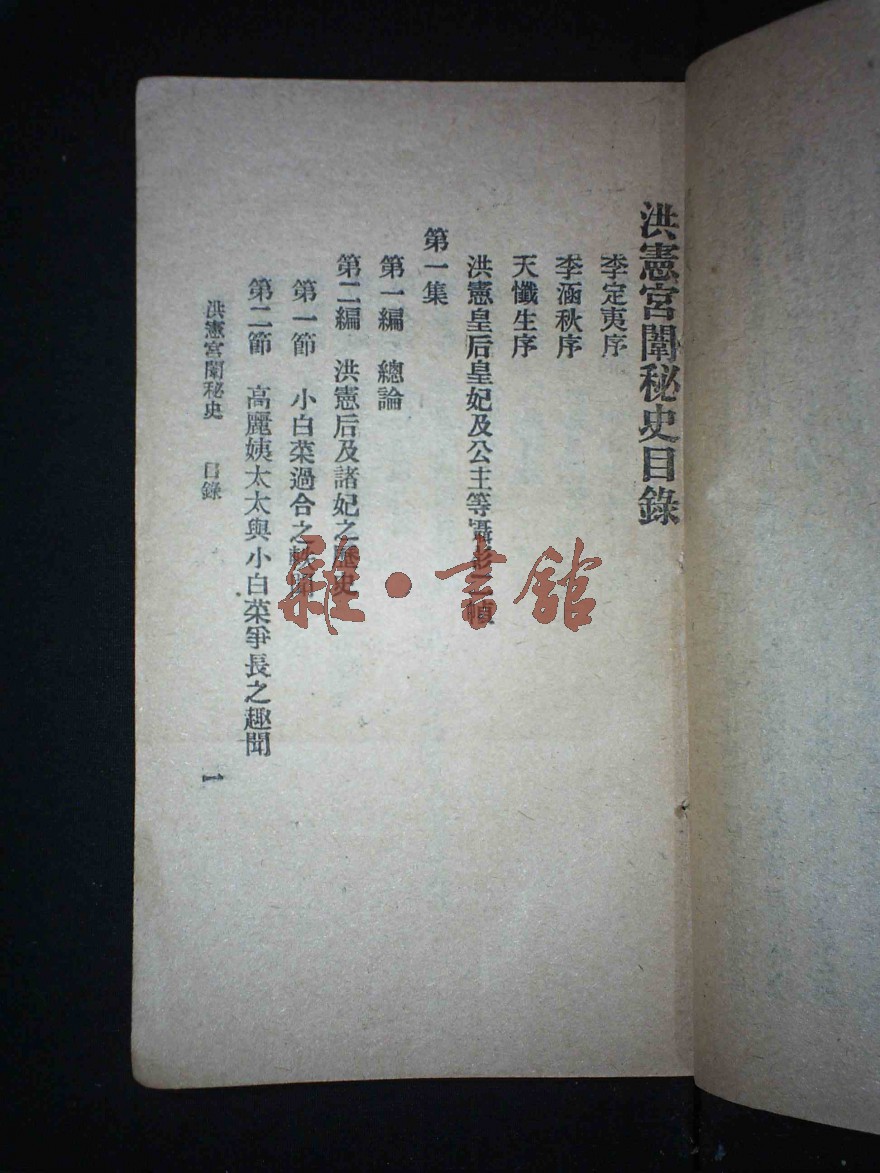 洪憲宮闈秘史目錄
李定夷序
李涵秋序
天懺生序
洪憲皇后皇妃及公主等攝影二幀
第一集
第一編　總論
第二編　洪憲后及諸妃之歷史
第一節　小白菜過合之軼聞
第二節　高麗姨太太與小白菜爭長之趣聞
洪憲宮闈秘史　目錄
一
雜·書館